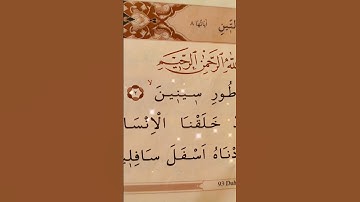 التّٖينِ اٰيَاتُهَا ٨
اللّٰهِ الرَّحْمٰنِ الرَّحٖيمِ
طُورِ سٖينٖينَ ٢
خَلَقْنَا الْاِنْسَا
دْنَاهُ اَسْفَلَ سَافِلٖي
93 Duh